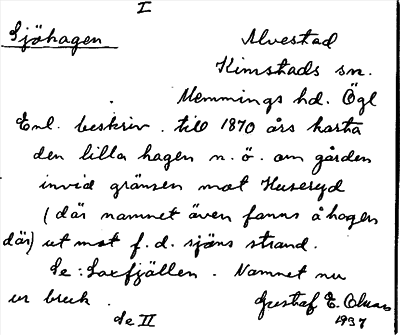 I
Sjöhagen Alvestad
Kimstads sn.
Memmings hd. Ögl
Enl. beskriv. till 1870 års karta
den lilla hagen n. ö. om gården
invid gränsen mot Huseryd
(där namnet även fanns å hagen
där) ut mot f. d. sjöns strand.
Se: Saxfjällen. Namnet nu
ur bruk. Gustaf E.
Se II 1937